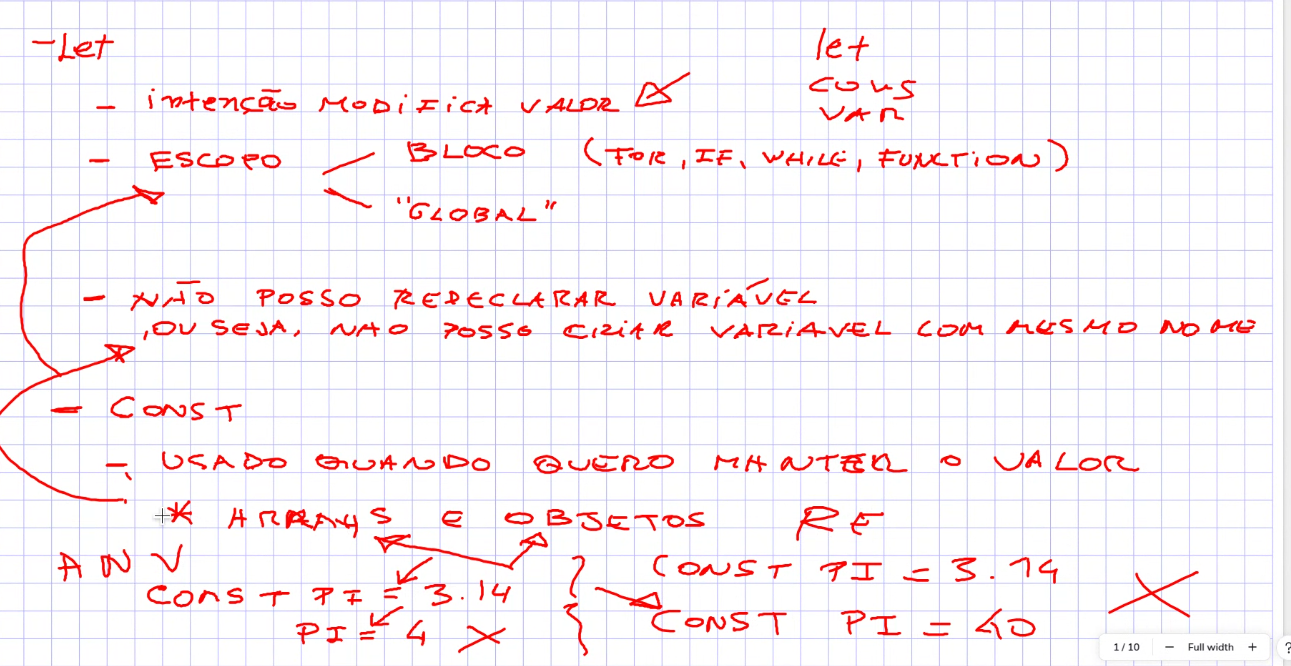 -Let
let
CONS
VAR
- intenção MODIFICA VALOR
- ESCOPO
BLOCO (FOR, IF, WHILE, FUNCTION)
"GLOBAL"
- NÃO POSSO REDECLARAR VARIÁVEL
, OU SEJA, NAO POSSO CRIAR VARIAVEL COM MESMO NOME
- CONST
- USADO QUANDO QUERO MANTER O VALOR
* ARRAYS E OBJETOS RE
A N V
CONST PI = 3.14
PI = 4 X
CONST PI = 3.14
CONST PI = 40
1 / 10 − Full width + ?